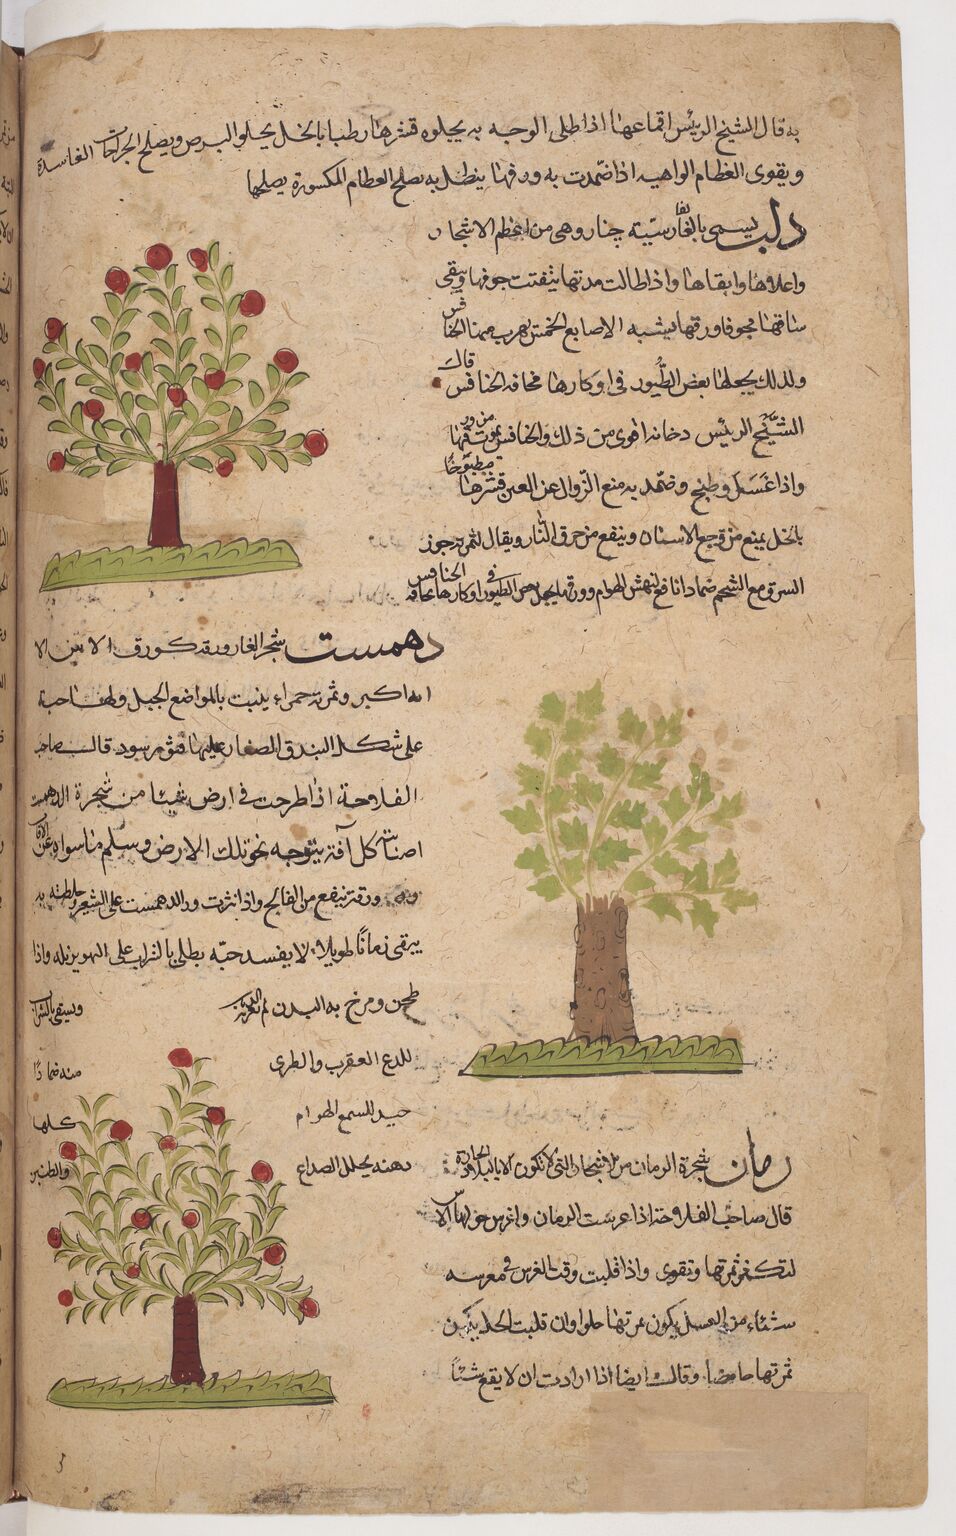 به قال الشيخ الرئيس اقماعها اذا طلى الوجه به يجلوه قشرها رطبا بالخل يجلو البرص ويصلح الجراحات الفاسدة
ويقوى العظام الواهيه اذا ضمدت به ورقها ينطل به يصلح العظام المكسورة يصلحها
دلب يسمى بالفارسيته چنار وهى من اعظم الاشجار
واعلاها وابقاها واذا طالت مدتها يتفتت جوفها ويبقى
ساقها مجوفا ورقها يشبه الاصابع الخمس يهرب منها الخنافس
ولذلك يجعلها بعض الطيور فى اوكارها مخافة الخنافس قال
الشيخ الرئيس دخانه اقوى من ذلك والخنافس يموت من ورقها
واذا غسل وطبخ وضمد به منع النزوال عن العين قشرها مطبوخا
بالخل يمنع من وجع الاسنان وينفع من حرق النار ويقال لثمرته جوز
السرو مع الشحم ضمادا نافع لنهش الهوام وورقه يجعل بعض الطيور فى اوكارها مخافة الخنافس
دهمست شجر الغار ورقه كورق الاس الا
انه اكبر وثمرته حمراء ينبت بالمواضع الجبل وله حبة
على شكل البندق الصغار عليها قشور سود قال صاحب
الفلاحة اذا طرحت فى ارض شيئا من شجرة الدهمست
اصابت كل آفة يتوجه نحو تلك الارض وسلم ما سواه عن الافات
ورقه ينفع من الفالج واذا نثرت ورق الدهمست على الشعير وخلطته به
يبقى زمانا طويلا لا يفسد حبه يطلى بالشراب على البهق يزيله واذا
طحن ومرخ به البدن ويسقى بالشراب
للدغ العقرب والطرى منه ضمادا
جيد للسع الهوام كلها
دهنه يحلل الصداع والطنين
رمان شجرة الرمان من الاشجار التى لا تكون الا بالبلاد الحارة
قال صاحب الفلاحة اذا غرست الرمان واغرس حولها الاس
لتكثر ثمرتها وتقوى واذا قلبت وقت الغرس فى مغرسه
شئاء من العسل يكون ثمرتها حلوا وان قلبت الخل يكون
ثمرتها حامضا وقال ايضا اذا اردت ان لا يقع شئا